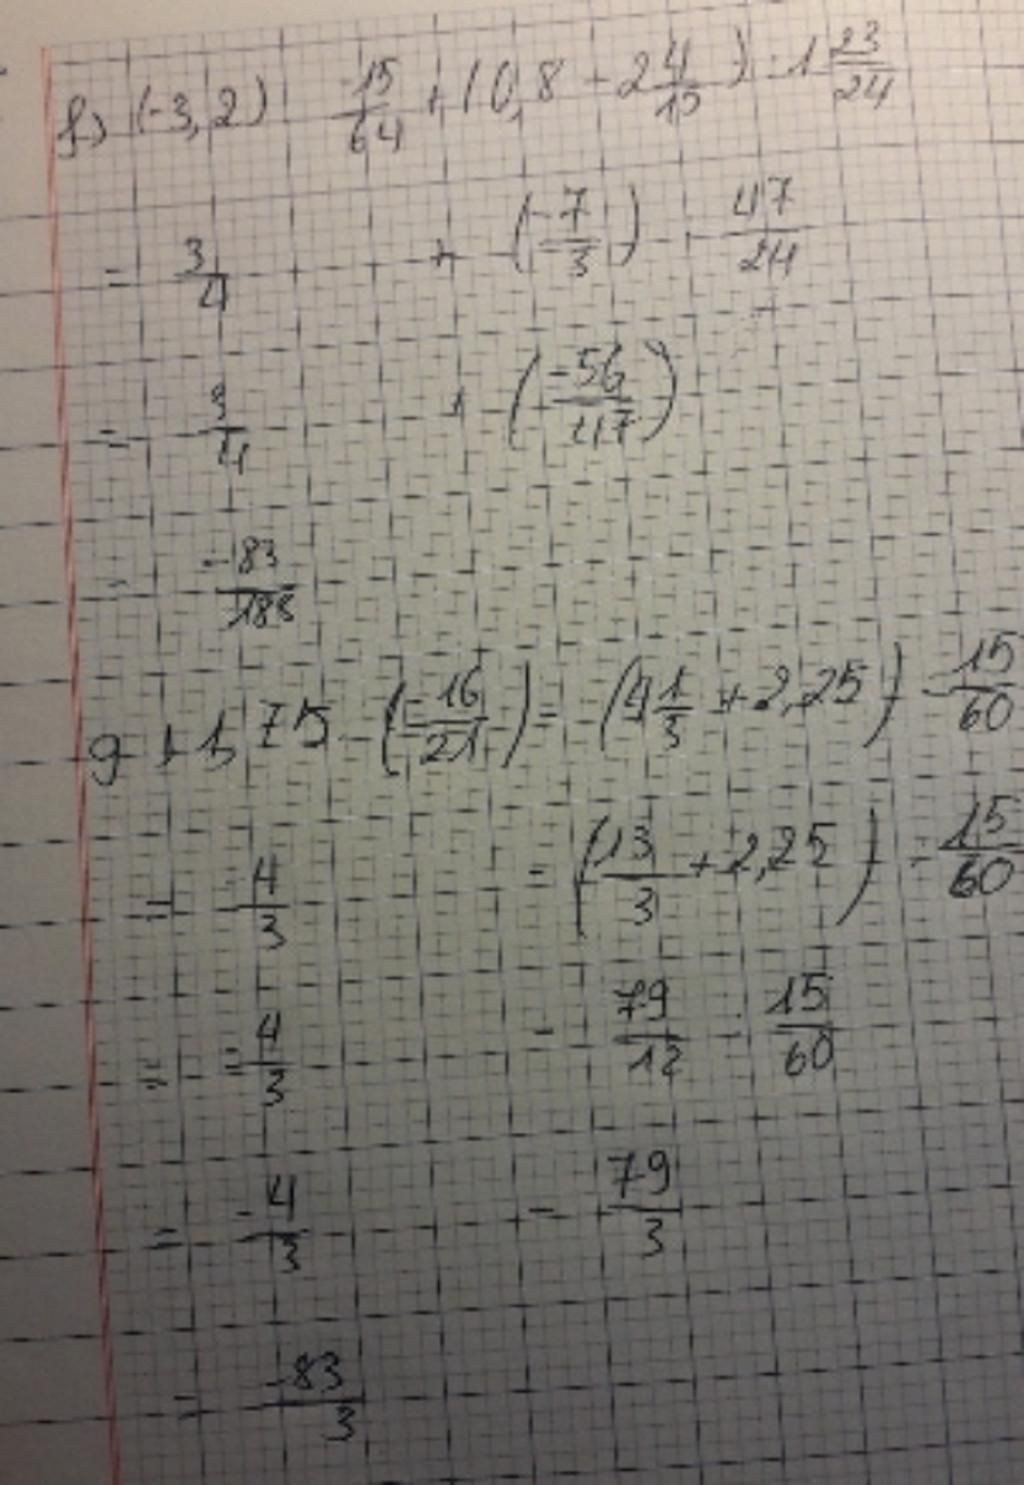 f) (-3,2) · -15/64 + (0,8 - 2 4/15) : 1 23/24
= 3/4 + (-7/3) : 47/24
= 3/4 + (-56/47)
= -83/188
g) 1,75 · (-16/21) - (4 1/3 + 2,25) : 15/60
= -4/3 - (13/3 + 2,25) : 15/60
= -4/3 - 79/12 : 15/60
= -4/3 - 79/3
= -83/3